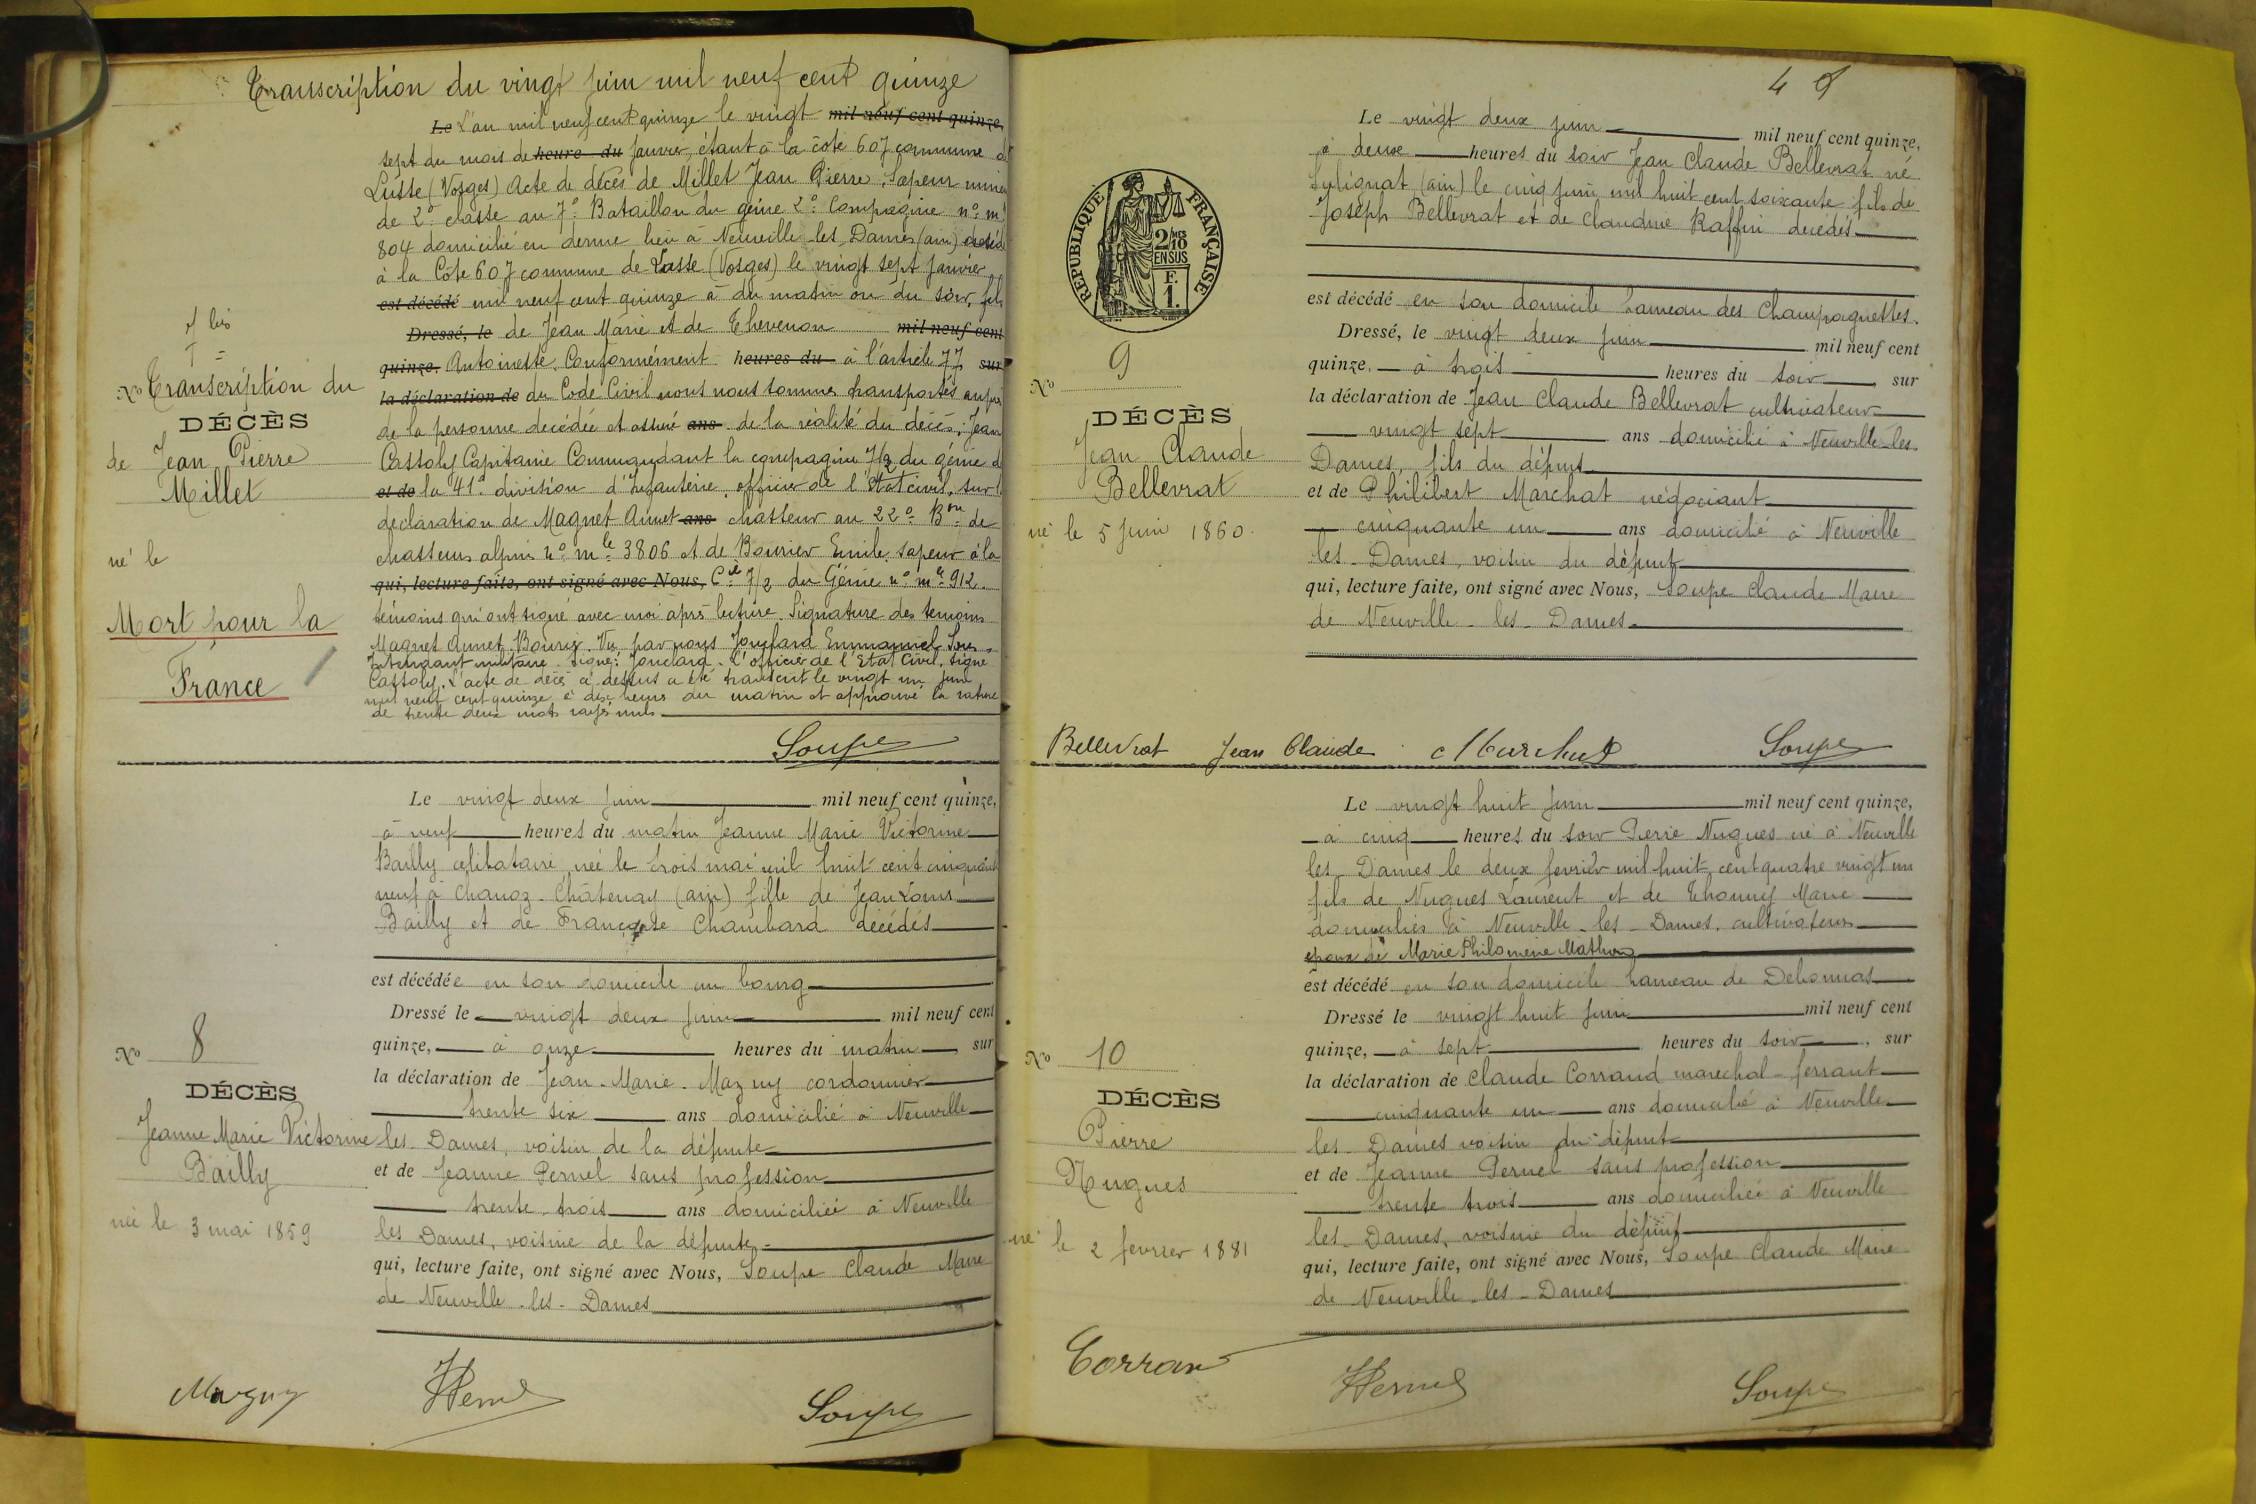 Transcription du vingt juin mil neuf cent quinze
Le L'an mil neuf cent quinze le vingt mil neuf cent quinze,
sept du mois de heure du janvier, étant à la côte 607 commune de
Lusse (Vosges) Acte de décès de Millet Jean Pierre, Sapeur mineur
de 2e classe au 7e Bataillon du génie 2e Compagnie no ml
804 domicilié en dernier lieu à Neuville les Dames (ain) décédé
à la Côte 607 commune de Lusse (Vosges) le vingt sept janvier
est décédé mil neuf cent quinze à du matin ou du soir, fils
Dressé, le de Jean Marie et de Thevenon mil neuf cent
quinze, Antoinette. Conformément heures du à l'article 77 sur
la déclaration de du Code Civil nous nous sommes transportés auprès
de la personne décédée et assuré ans de la réalité du décès, Jean
Cassoly Capitaine Commandant la compagnie 7/2 du génie de
et de la 41e division d'Infanterie, officier de l'état civil, sur la
déclaration de Magnet Annet ans chasseur au 22e Bon de
chasseurs alpins no mle 3806 et de Bourier Emile sapeur à la
qui, lecture faite, ont signé avec Nous, Cie 7/2 du Génie no mle 912.
témoins qui ont signé avec moi après lecture. Signature des témoins
Magnet Annet. Bourier. Vu par nous Jouclard Emmanuel Sous-
Intendant militaire. Signé: Jouclard. L'officier de l'Etat Civil, signé
Cassoly. L'acte de décès ci dessus a été transcrit le vingt un juin
mil neuf cent quinze à dix heures du matin et approuvé la rature
de trente deux mots rayés nuls
Soupe
7 bis
No Transcription du
DÉCÈS
de Jean Pierre
Millet
né le
Mort pour la
France
Le vingt deux juin mil neuf cent quinze,
à neuf heures du matin Jeanne Marie Victorine
Bailly célibataire, née le trois mai mil huit cent cinquante
neuf à Chanoz-Châtenay (ain) fille de Jean Louis
Bailly et de Françoise Chambard décédés
est décédée en son domicile au bourg
Dressé le vingt deux juin mil neuf cent
quinze, à onze heures du matin, sur
la déclaration de Jean-Marie Mazuy cordonnier
trente six ans domicilié à Neuville
les Dames, voisin de la défunte
et de Jeanne Pernel sans profession
trente trois ans domiciliée à Neuville
les Dames, voisine de la défunte
qui, lecture faite, ont signé avec Nous, Soupe Claude Maire
de Neuville-les-Dames
No 8
DÉCÈS
Jeanne Marie Victorine
Bailly
née le 3 mai 1859
Mazuy Pernel Soupe
4
Le vingt deux juin mil neuf cent quinze,
à deux heures du soir Jean Claude Bellevrat né
Sulignat (ain) le cinq juin mil huit cent soixante fils de
Joseph Bellevrat et de Claudine Raffin décédés
est décédé en son domicile hameau des Champagnettes.
Dressé, le vingt deux juin mil neuf cent
quinze, à trois heures du soir, sur
la déclaration de Jean Claude Bellevrat cultivateur
vingt sept ans domicilié à Neuville-les-
Dames, fils du défunt
et de Philibert Marchat négociant
cinquante un ans domicilié à Neuville
les-Dames, voisin du défunt
qui, lecture faite, ont signé avec Nous, Soupe Claude Maire
de Neuville-les-Dames.
RÉPUBLIQUE FRANÇAISE
2/10 MES
EN SUS
F.
1.
No 9
DÉCÈS
Jean Claude
Bellevrat
né le 5 juin 1860.
Bellevrat Jean Claude Marchat Soupe
Le vingt huit juin mil neuf cent quinze,
à cinq heures du soir Pierre Nugues né à Neuville
les Dames le deux février mil huit cent quatre vingt un
fils de Nugues Laurent et de Marie
domiciliés à Neuville-les-Dames, cultivateurs
époux de Marie Philomène Mathon
est décédé en son domicile hameau de
Dressé le vingt huit juin mil neuf cent
quinze, à sept heures du soir, sur
la déclaration de Claude Corrand marechal-ferrant
cinquante un ans domicilié à Neuville
les-Dames voisin du défunt
et de Jeanne Pernel sans profession
trente trois ans domiciliée à Neuville
les-Dames, voisine du défunt
qui, lecture faite, ont signé avec Nous, Soupe Claude Maire
de Neuville-les-Dames
No 10
DÉCÈS
Pierre
Nugues
né le 2 février 1881
Corran Pernel Soupe